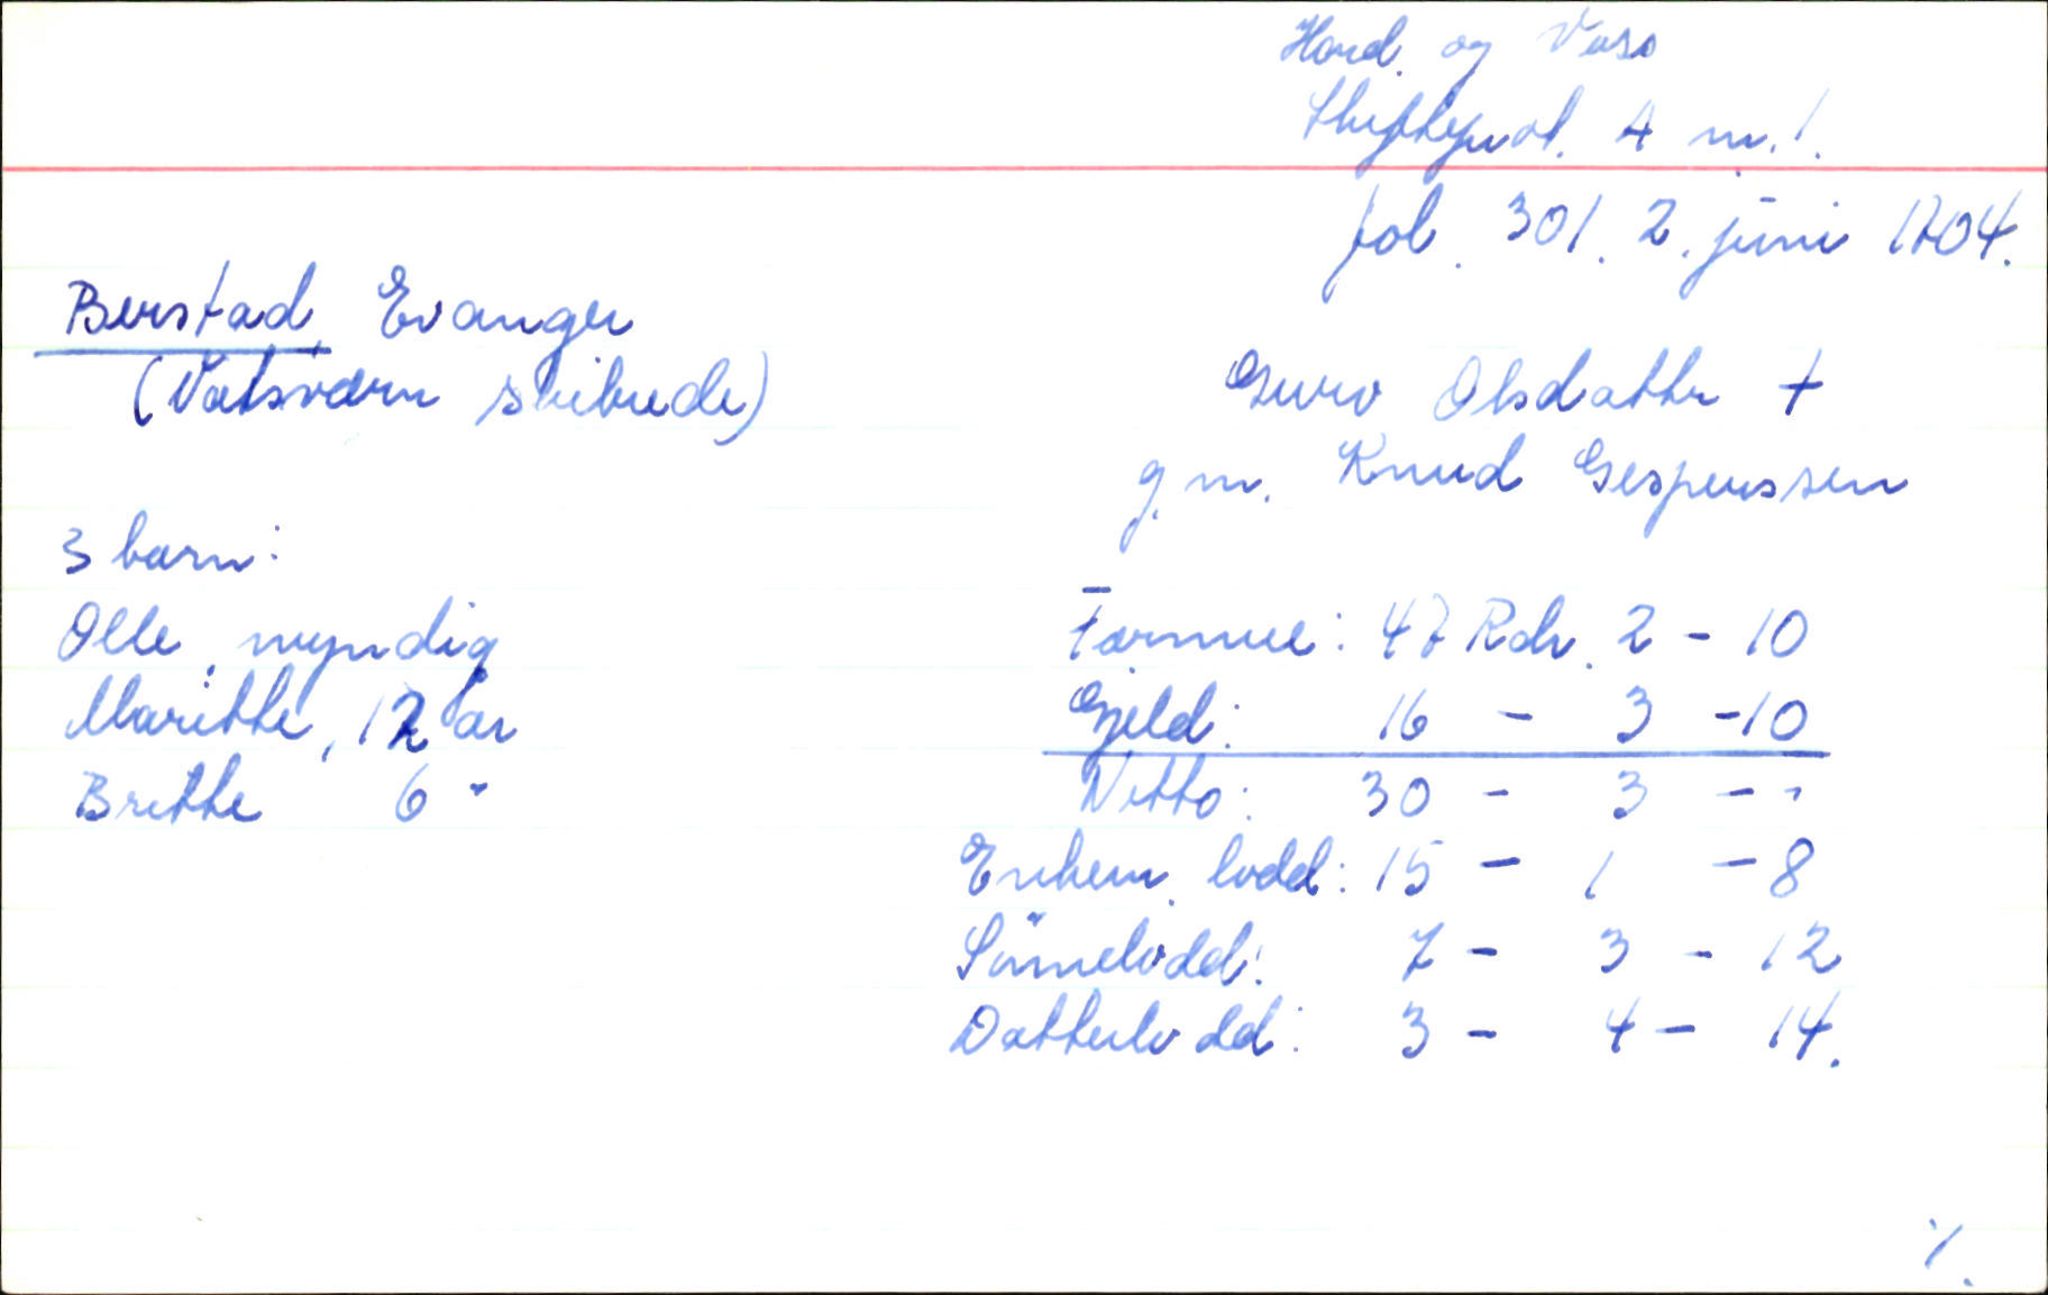 Hard. og Voss
Skifteprot. A nr. 1.
fol. 301. 2. juni 1704.
Berstad, Evanger
(Vatsværn skibrede)
Guro Olsdatter †
g.m. Knud Gesperssen
3 barn:
Olle, myndig
Maritthe, 12 år
Britthe 6 "
Formue: 47 Rdr. 2 - 10
Gjeld: 16 - 3 - 10
Netto: 30 - 3 - "
Enkem. lodd: 15 - 1 - 8
Sønnelodd: 7 - 3 - 12
Datterlodd: 3 - 4 - 14.